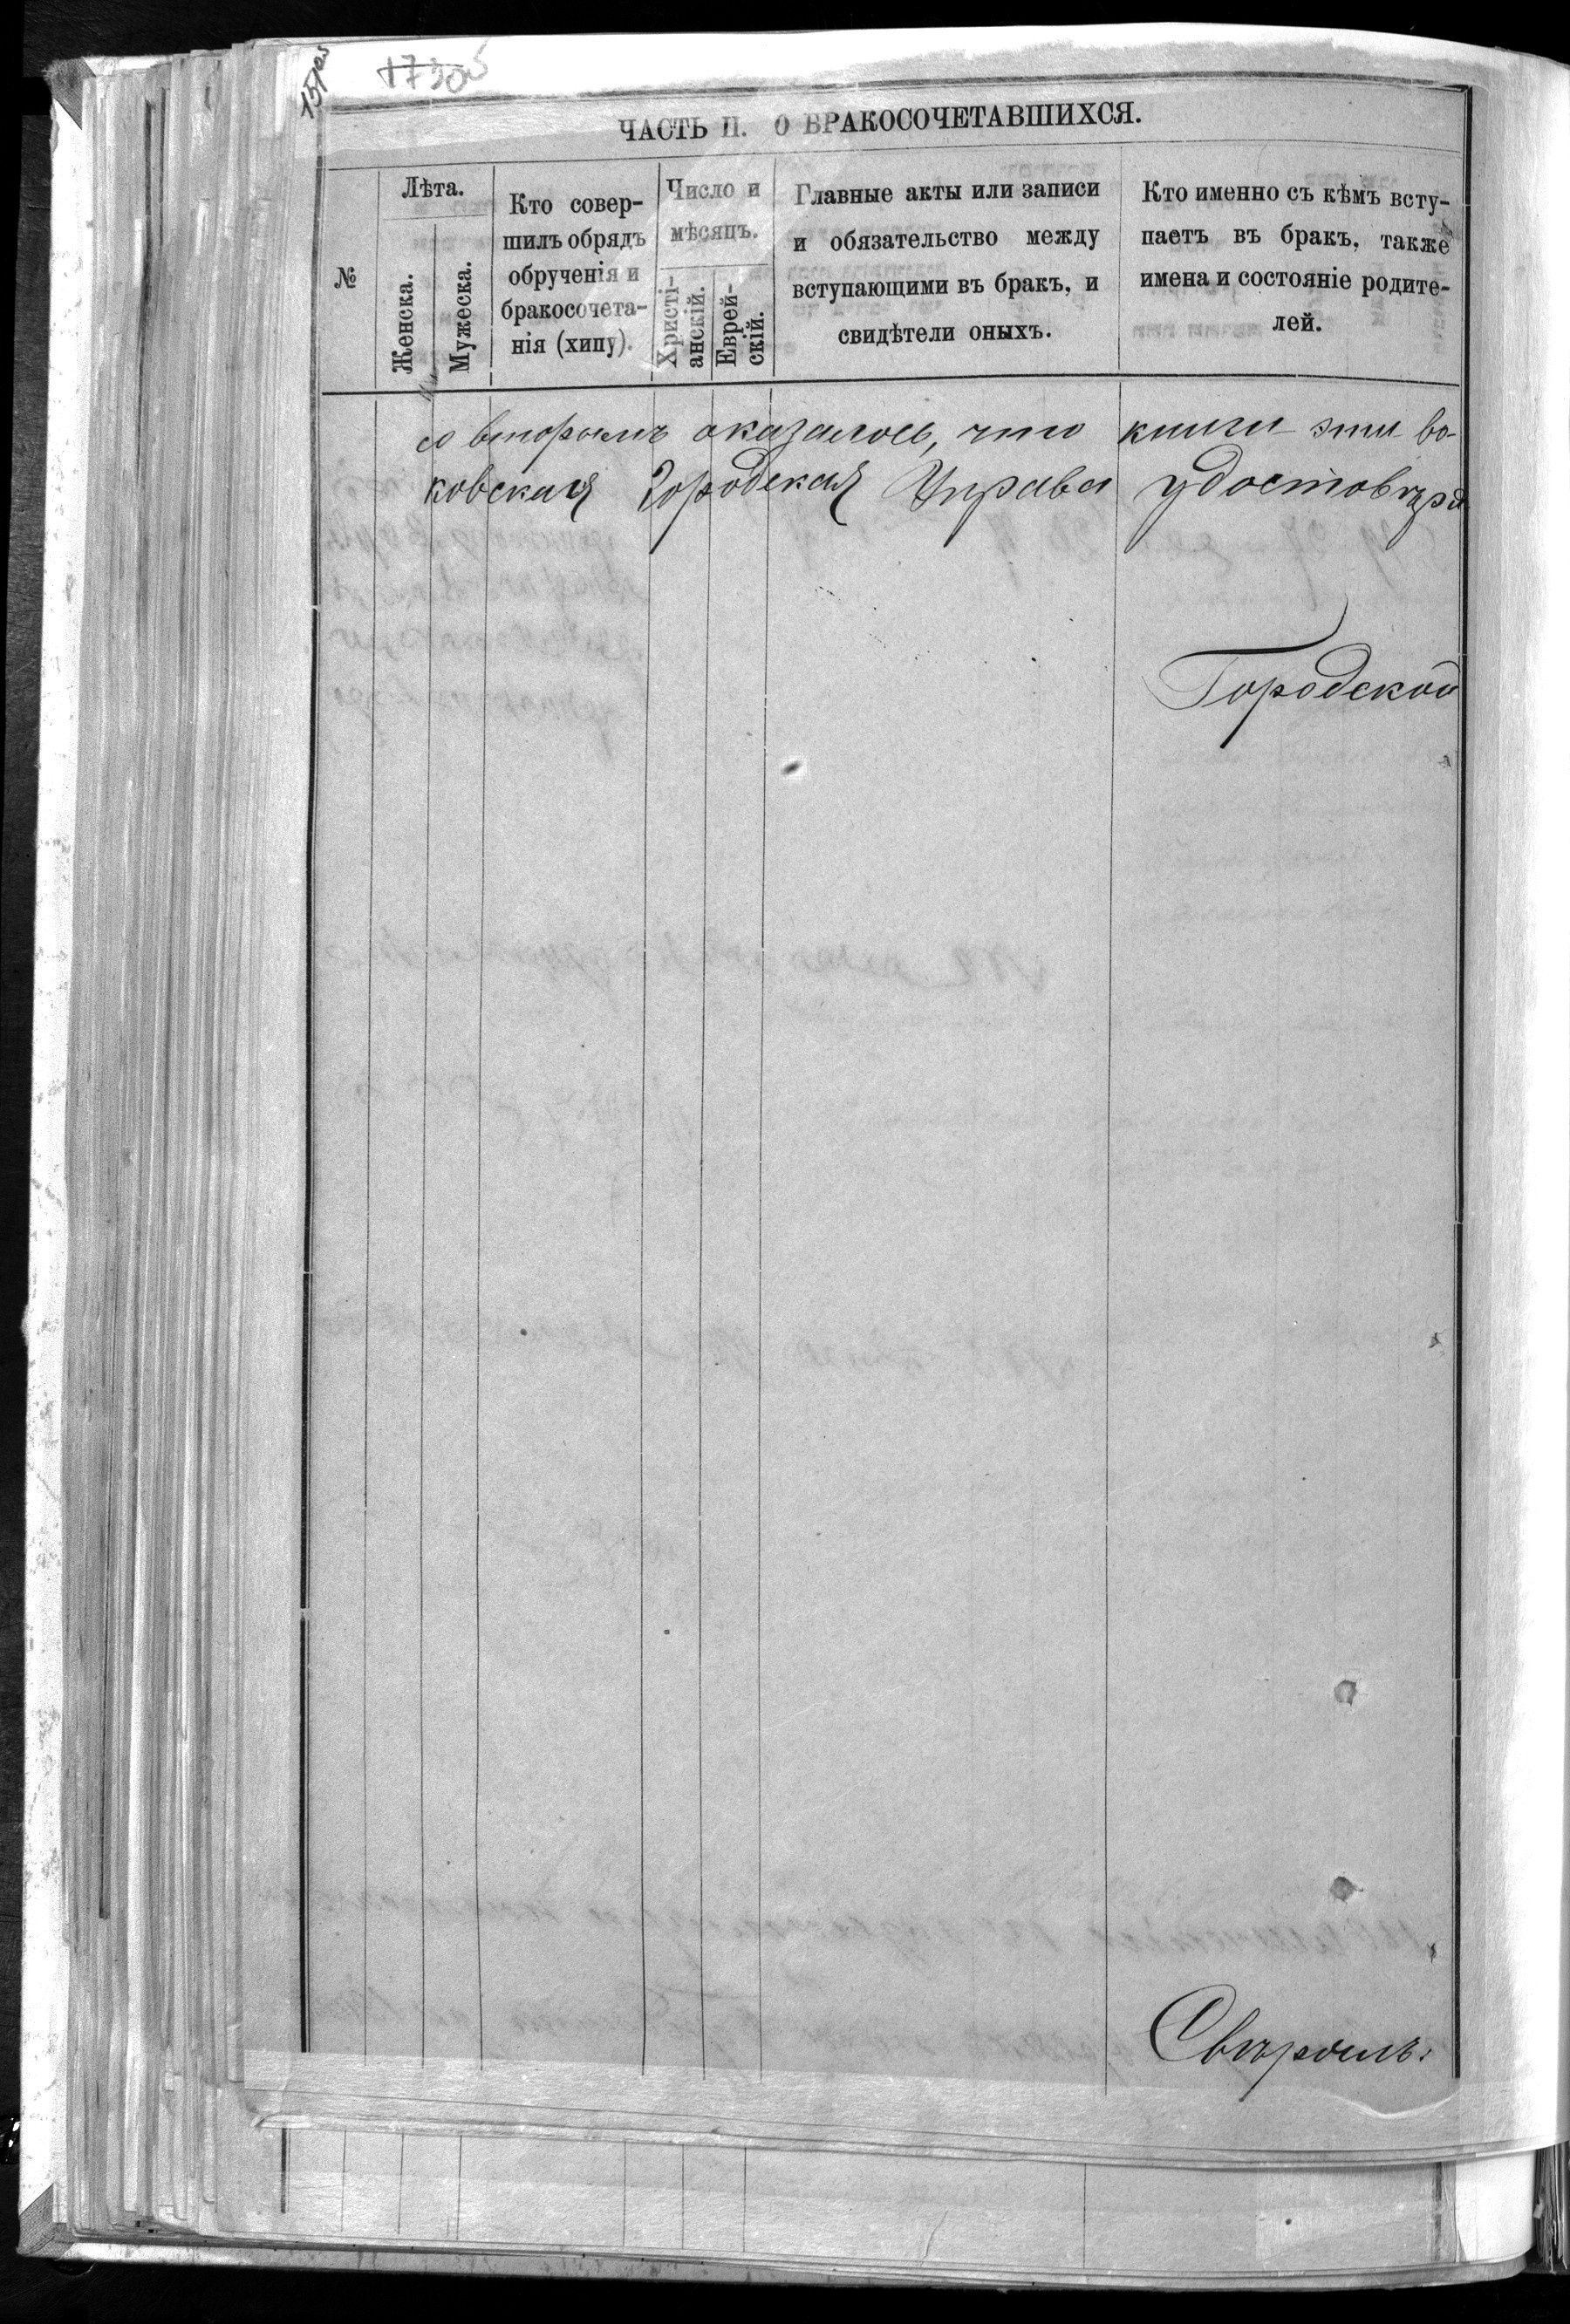 151об
1730б
ЧАСТЬ II. О БРАКОСОЧЕТАВШИХСЯ.
№
Лѣта.
Женска.
Мужеска.
Кто совер-
шилъ обрядъ
обрученія и
бракосочета-
нія (хипу).
Число и
мѣсяцъ.
Христі-
анскій.
Еврей-
скій.
Главные акты или записи
и обязательство между
вступающими въ бракъ, и
свидѣтели оныхъ.
Кто именно съ кѣмъ всту-
паетъ въ бракъ, также
имена и состояніе родите-
лей.
со вторымъ оказалось, что книги эти во-
ковская Городская Управа удостовѣря
Городской
Свѣрилъ: